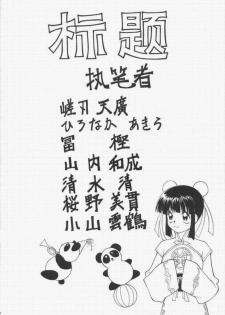 标题
执笔者
嵯刃 天廣
ひろなか あきら
冨 樫
山内和成
清水 清
桜野美貫
小山雲鶴